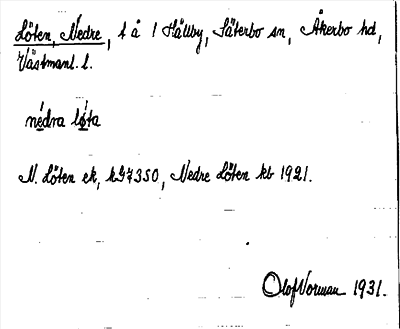 Löten, Nedre, t å 1 Hällby, Säterbo sn, Åkerbo hd,
Västmanl. l.
nedra løta
N. Löten ek, kG7350, Nedre Löten kb 1921.
Olof Vorman 1931.